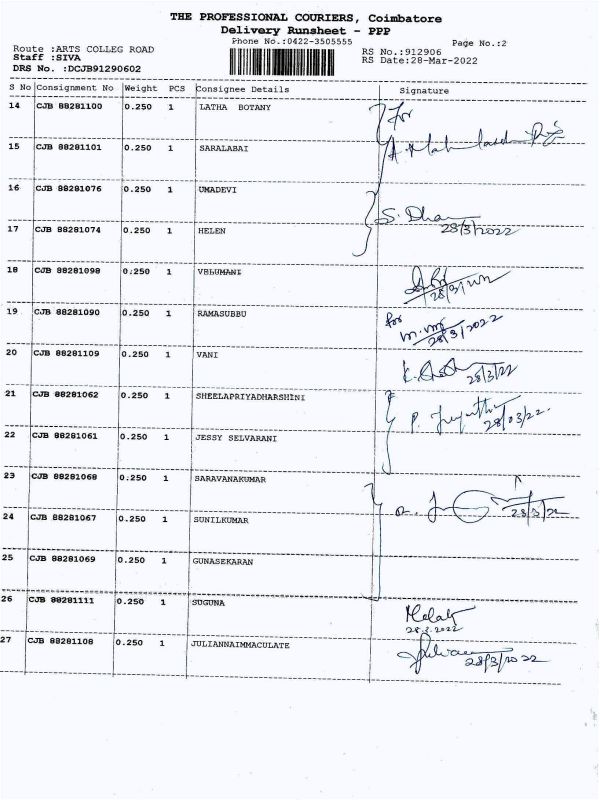 THE PROFESSIONAL COURIERS, Coimbatore
Delivery Runsheet - PPP
Phone No.:0422-3505555
Page No.:2
Route :ARTS COLLEG ROAD
RS No.:912906
Staff :SIVA
RS Date:28-Mar-2022
DRS No. :DCJB91290602
S No Consignment No Weight PCS Consignee Details Signature
14 CJB 88281100 0.250 1 LATHA BOTANY For
15 CJB 88281101 0.250 1 SARALABAI
16 CJB 88281076 0.250 1 UMADEVI S. Dha
17 CJB 88281074 0.250 1 HELEN 28/3/2022
18 CJB 88281098 0.250 1 VELUMANI
19 CJB 88281090 0.250 1 RAMASUBBU for
28/3/2022
20 CJB 88281109 0.250 1 VANI 28/3/22
21 CJB 88281062 0.250 1 SHEELAPRIYADHARSHINI
28/03/22.
22 CJB 88281061 0.250 1 JESSY SELVARANI
23 CJB 88281068 0.250 1 SARAVANAKUMAR
28/3/22
24 CJB 88281067 0.250 1 SUNILKUMAR
25 CJB 88281069 0.250 1 GUNASEKARAN
26 CJB 88281111 0.250 1 SUGUNA
28.3.2022
27 CJB 88281108 0.250 1 JULIANNAIMMACULATE 28/3/2022